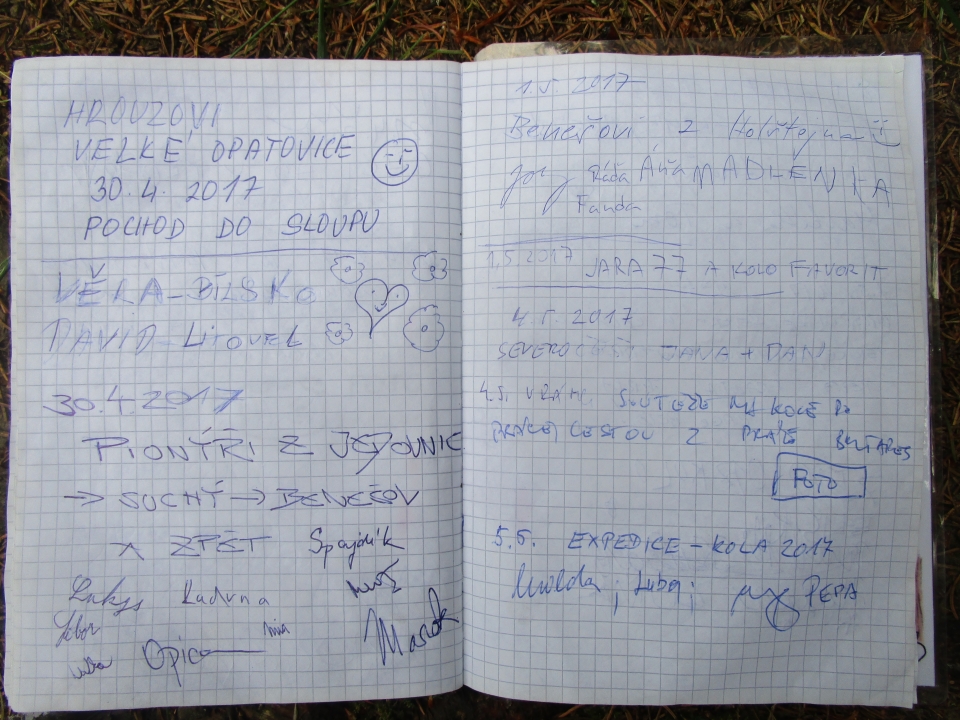 HROUZOVI
VELKÉ OPATOVICE
30.4. 2017
POCHOD DO SLOUPU
VĚRA - BÍLSKO
DAVID - LITOVEL
30.4.2017
PIONÝŘI Z JEDOVNIC
→ SUCHÝ → BENEŠOV
A ZPĚT
Lukyn Kaduna
Opica
Marek
1.5. 2017
Benešovi z Holštejna
Joh Ráďa Áňa MADLENKA
Fanda
1.5 2017 JARA 77 A KOLO FAVORIT
4.5. 2017
SEVERO JANA + DAN
4.5. V RÁMCI SOUTĚŽE NA KOLE DO
PRÁCE CESTOU Z PRÁCE
FOTO
5.5. EXPEDICE - KOLA 2017
; Luboj; PEPA